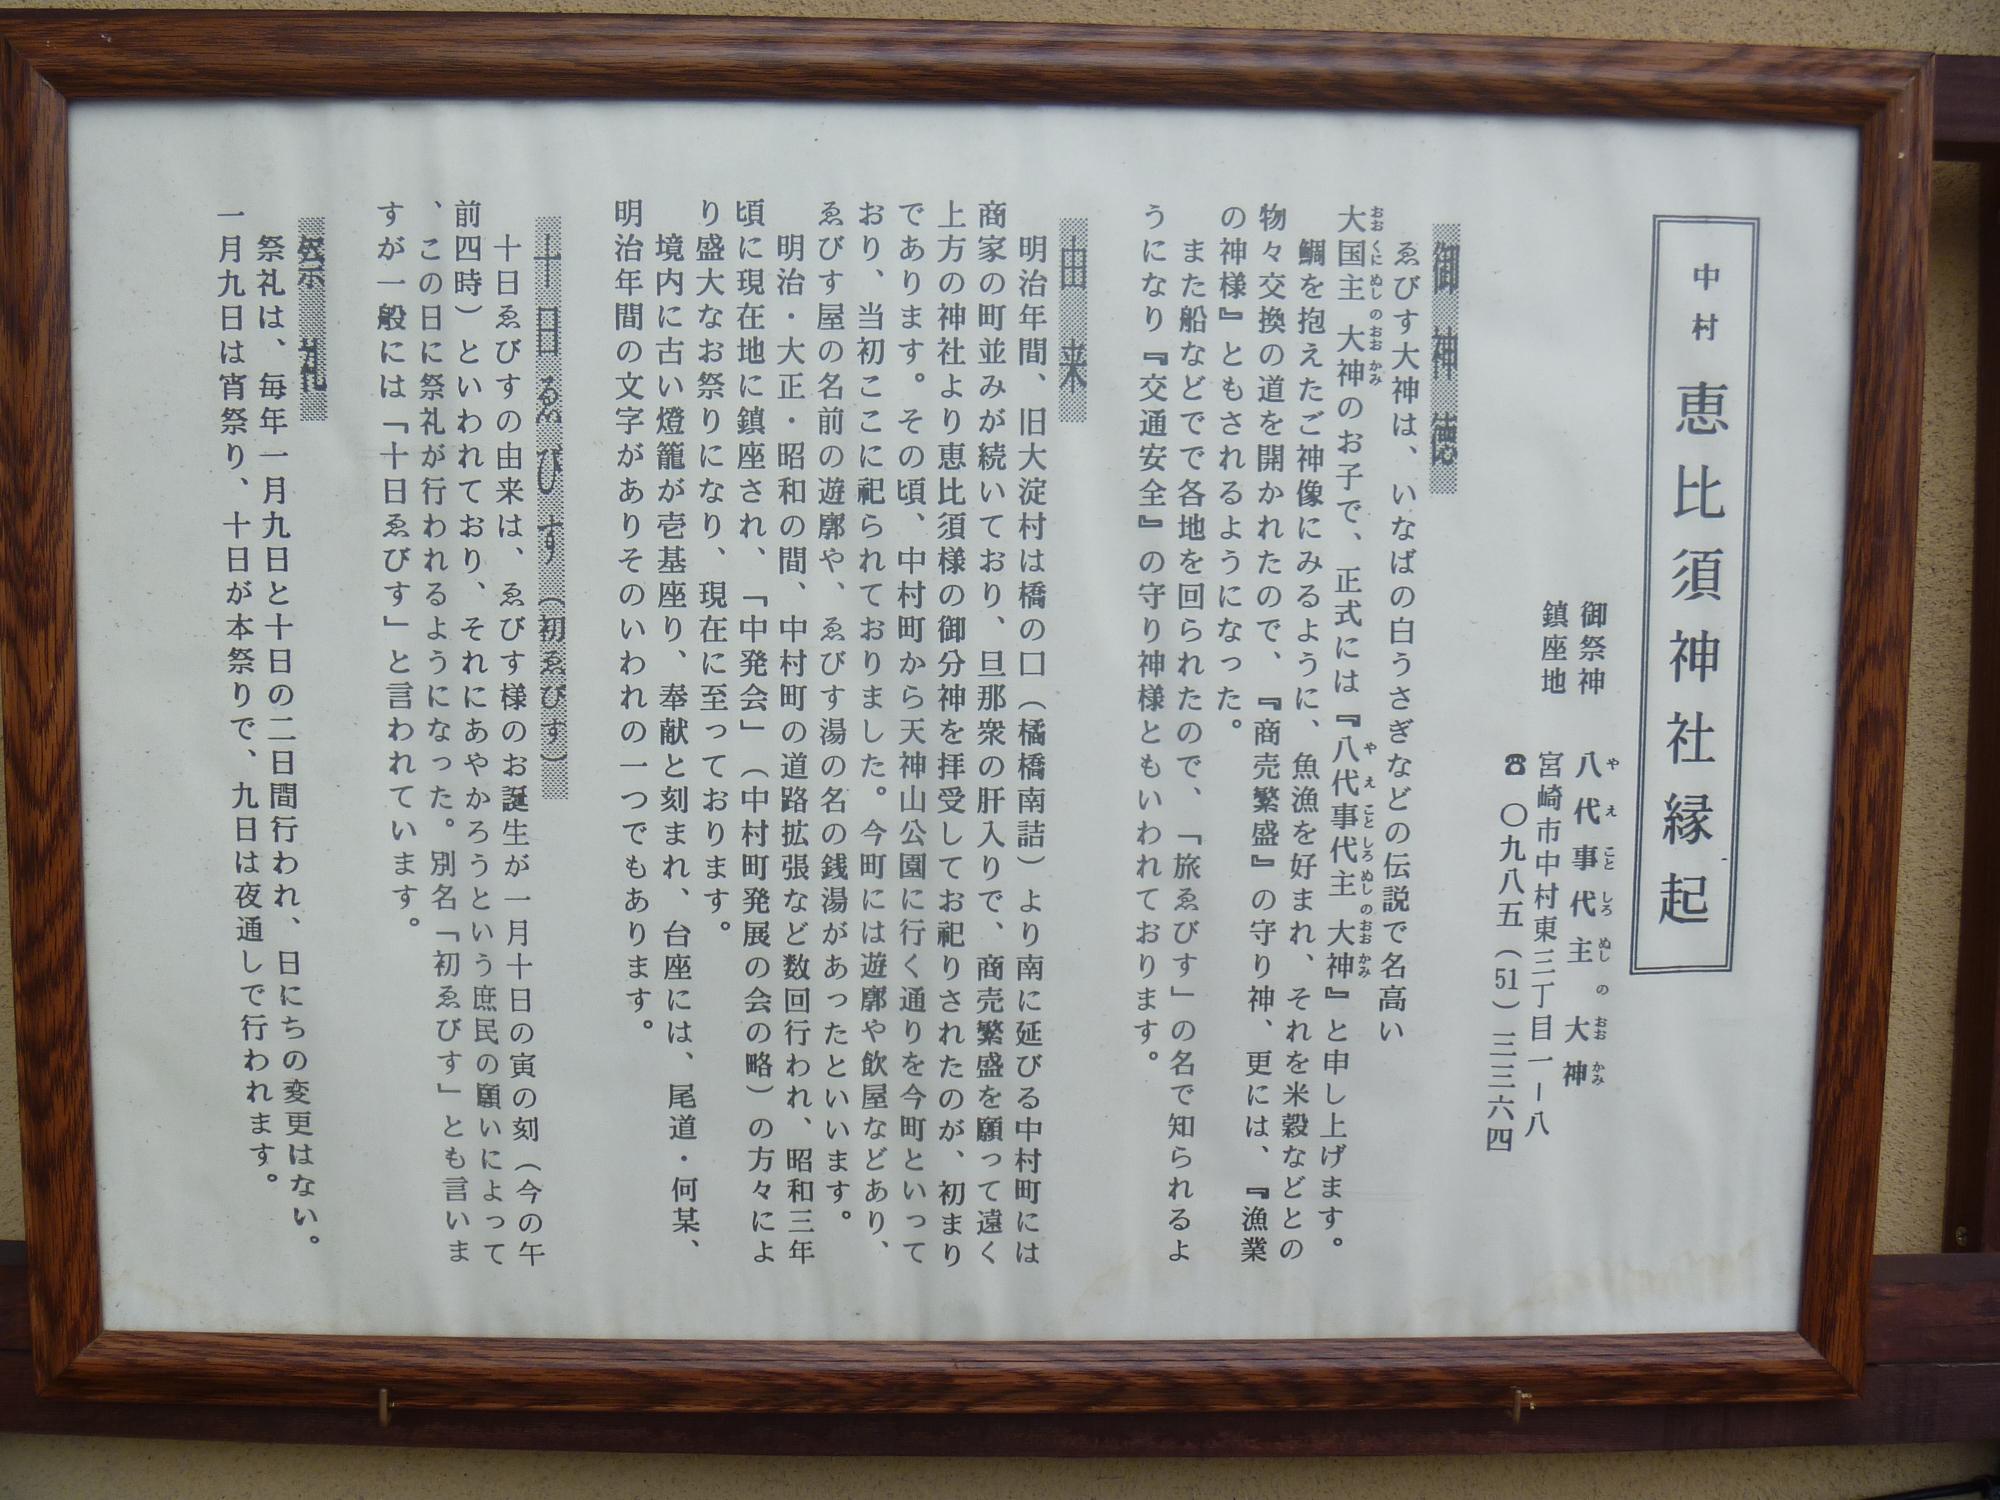 中村 恵比須神社縁起
御祭神 八代事代主の大神
やえことしろぬしのおおかみ
鎮座地 宮崎市中村東三丁目一ー八
☎ 〇九八五(51)三三六四
御神徳
ゑびす大神は、いなばの白うさぎなどの伝説で名高い
大国主大神のお子で、正式には『八代事代主大神』と申し上げます。
おおくにぬしのおおかみ やえことしろぬしのおおかみ
鯛を抱えたご神像にみるように、魚漁を好まれ、それを米穀などとの
物々交換の道を開かれたので、『商売繁盛』の守り神、更には、『漁業
の神様』ともされるようになった。
また船などでで各地を回られたので、「旅ゑびす」の名で知られるよ
うになり『交通安全』の守り神様ともいわれております。
由来
明治年間、旧大淀村は橋の口(橘橋南詰)より南に延びる中村町には
商家の町並みが続いており、旦那衆の肝入りで、商売繁盛を願って遠く
上方の神社より恵比須様の御分神を拝受してお祀りされたのが、初まり
であります。その頃、中村町から天神山公園に行く通りを今町といって
おり、当初ここに祀られておりました。今町には遊廓や飲屋などあり、
ゑびす屋の名前の遊廓や、ゑびす湯の名の銭湯があったといいます。
明治・大正・昭和の間、中村町の道路拡張など数回行われ、昭和三年
頃に現在地に鎮座され、「中発会」(中村町発展の会の略)の方々によ
り盛大なお祭りになり、現在に至っております。
境内に古い燈籠が壱基座り、奉献と刻まれ、台座には、尾道・何某、
明治年間の文字がありそのいわれの一つでもあります。
十日ゑびす(初ゑびす)
十日ゑびすの由来は、ゑびす様のお誕生が一月十日の寅の刻(今の午
前四時)といわれており、それにあやかろうという庶民の願いによって
、この日に祭礼が行われるようになった。別名「初ゑびす」とも言いま
すが一般には「十日ゑびす」と言われています。
祭礼
祭礼は、毎年一月九日と十日の二日間行われ、日にちの変更はない。
一月九日は宵祭り、十日が本祭りで、九日は夜通しで行われます。